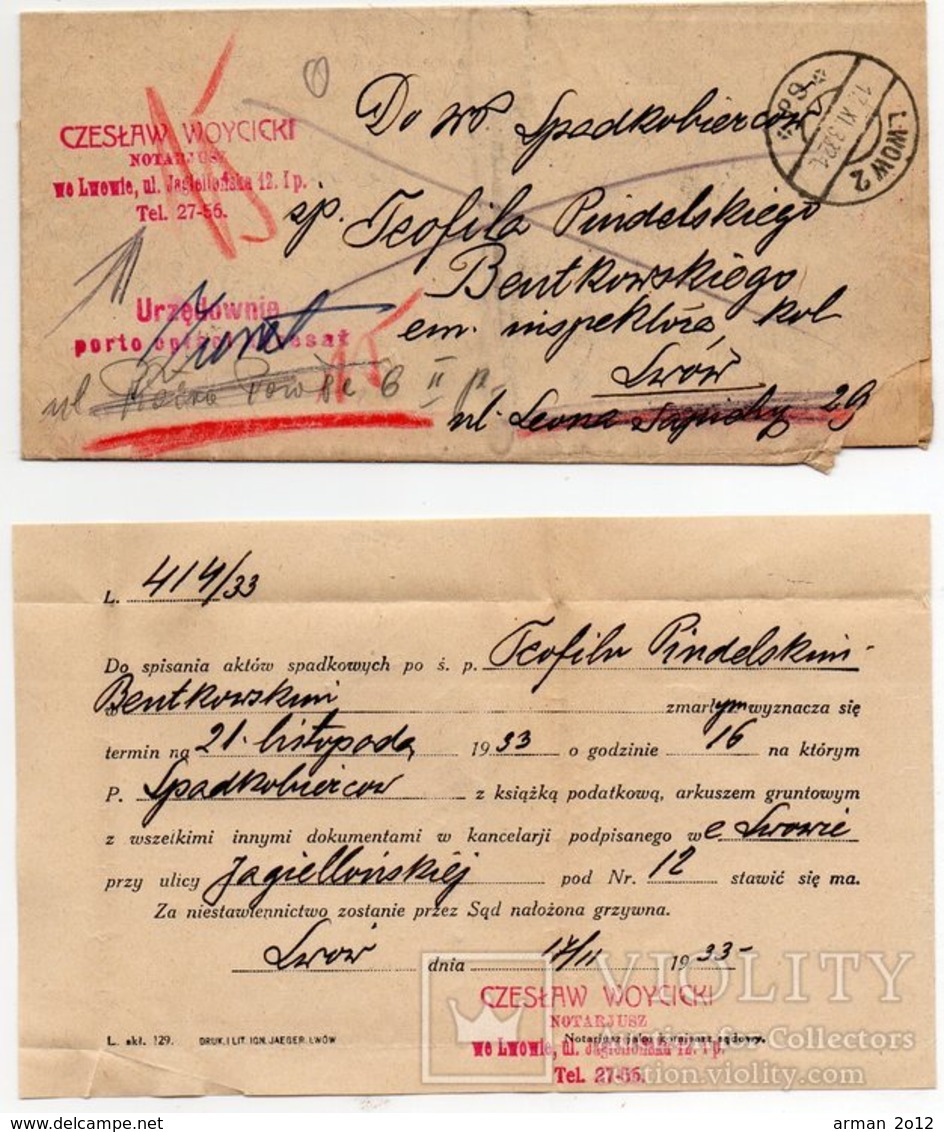 CZESŁAW WOYCICKI
NOTARJUSZ
we Lwowie, ul. Jagiellońska 12. I p.
Tel. 27-56.
Do WP. Spadkobierców
śp. Teofila Pindelskiego
Bentkowskiego
em. inspektóra kol
Lwów
ul. Leona Sapiehy 29
LWÓW 2
17. XI. 33
15
Urzędownie
porto
15
ul 6 II p.
L. 414/33
Do spisania aktów spadkowych po ś. p. Teofilu Pindelskim-
Bentkowskim zmarłym wyznacza się
termin na 21. listopada 1933 o godzinie 16 na którym
P. Spadkobierców z książką podatkową, arkuszem gruntowym
z wszelkimi innymi dokumentami w kancelarji podpisanego we Lwowie
przy ulicy Jagiellońskiej pod Nr. 12 stawić się ma.
Za niestawiennictwo zostanie przez Sąd nałożona grzywna.
Lwów dnia 17/11 1933-
CZESŁAW WOYCICKI
NOTARJUSZ
Notarjusz jako komisarz sądowy.
we Lwowie, ul. Jagiellońska 12. I p.
Tel. 27-56.
L. skł. 129. DRUK. I LIT. IGN. JAEGER, LWÓW
VIOLITY
Auction for Collectors
auction.violity.com
arman 2012